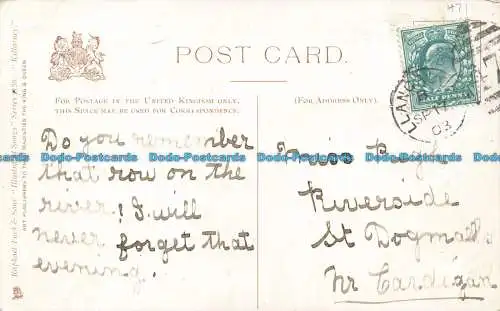 POST CARD.
FOR POSTAGE IN THE UNITED KINGDOM ONLY,
THIS SPACE MAY BE USED FOR CORRESPONDENCE.
(FOR ADDRESS ONLY).
H71
LLANG
SP 17
03
Do you remember
that row on the
river! I will
never forget that
evening.
Miss
Riverside
St Dogmails
Nr Cardigan
Dodo-Postcards Dodo-Postcards Dodo-Postcards Dodo-Postcards
Raphael Tuck & Sons' "Illustrated Songs" Series "Killarney"
ART PUBLISHERS TO THEIR MAJESTIES THE KING & QUEEN